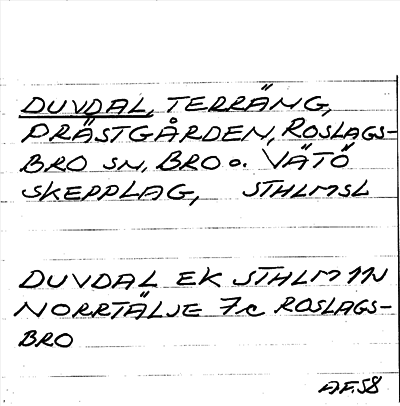 DUVDAL, TERRÄNG,
PRÄSTGÅRDEN, ROSLAGS-
BRO SN, BRO o. VÄTÖ
SKEPPLAG, STHLMSL
DUVDAL EK STHLM 11N
NORRTÄLJE 7c ROSLAGS-
BRO
AF.58